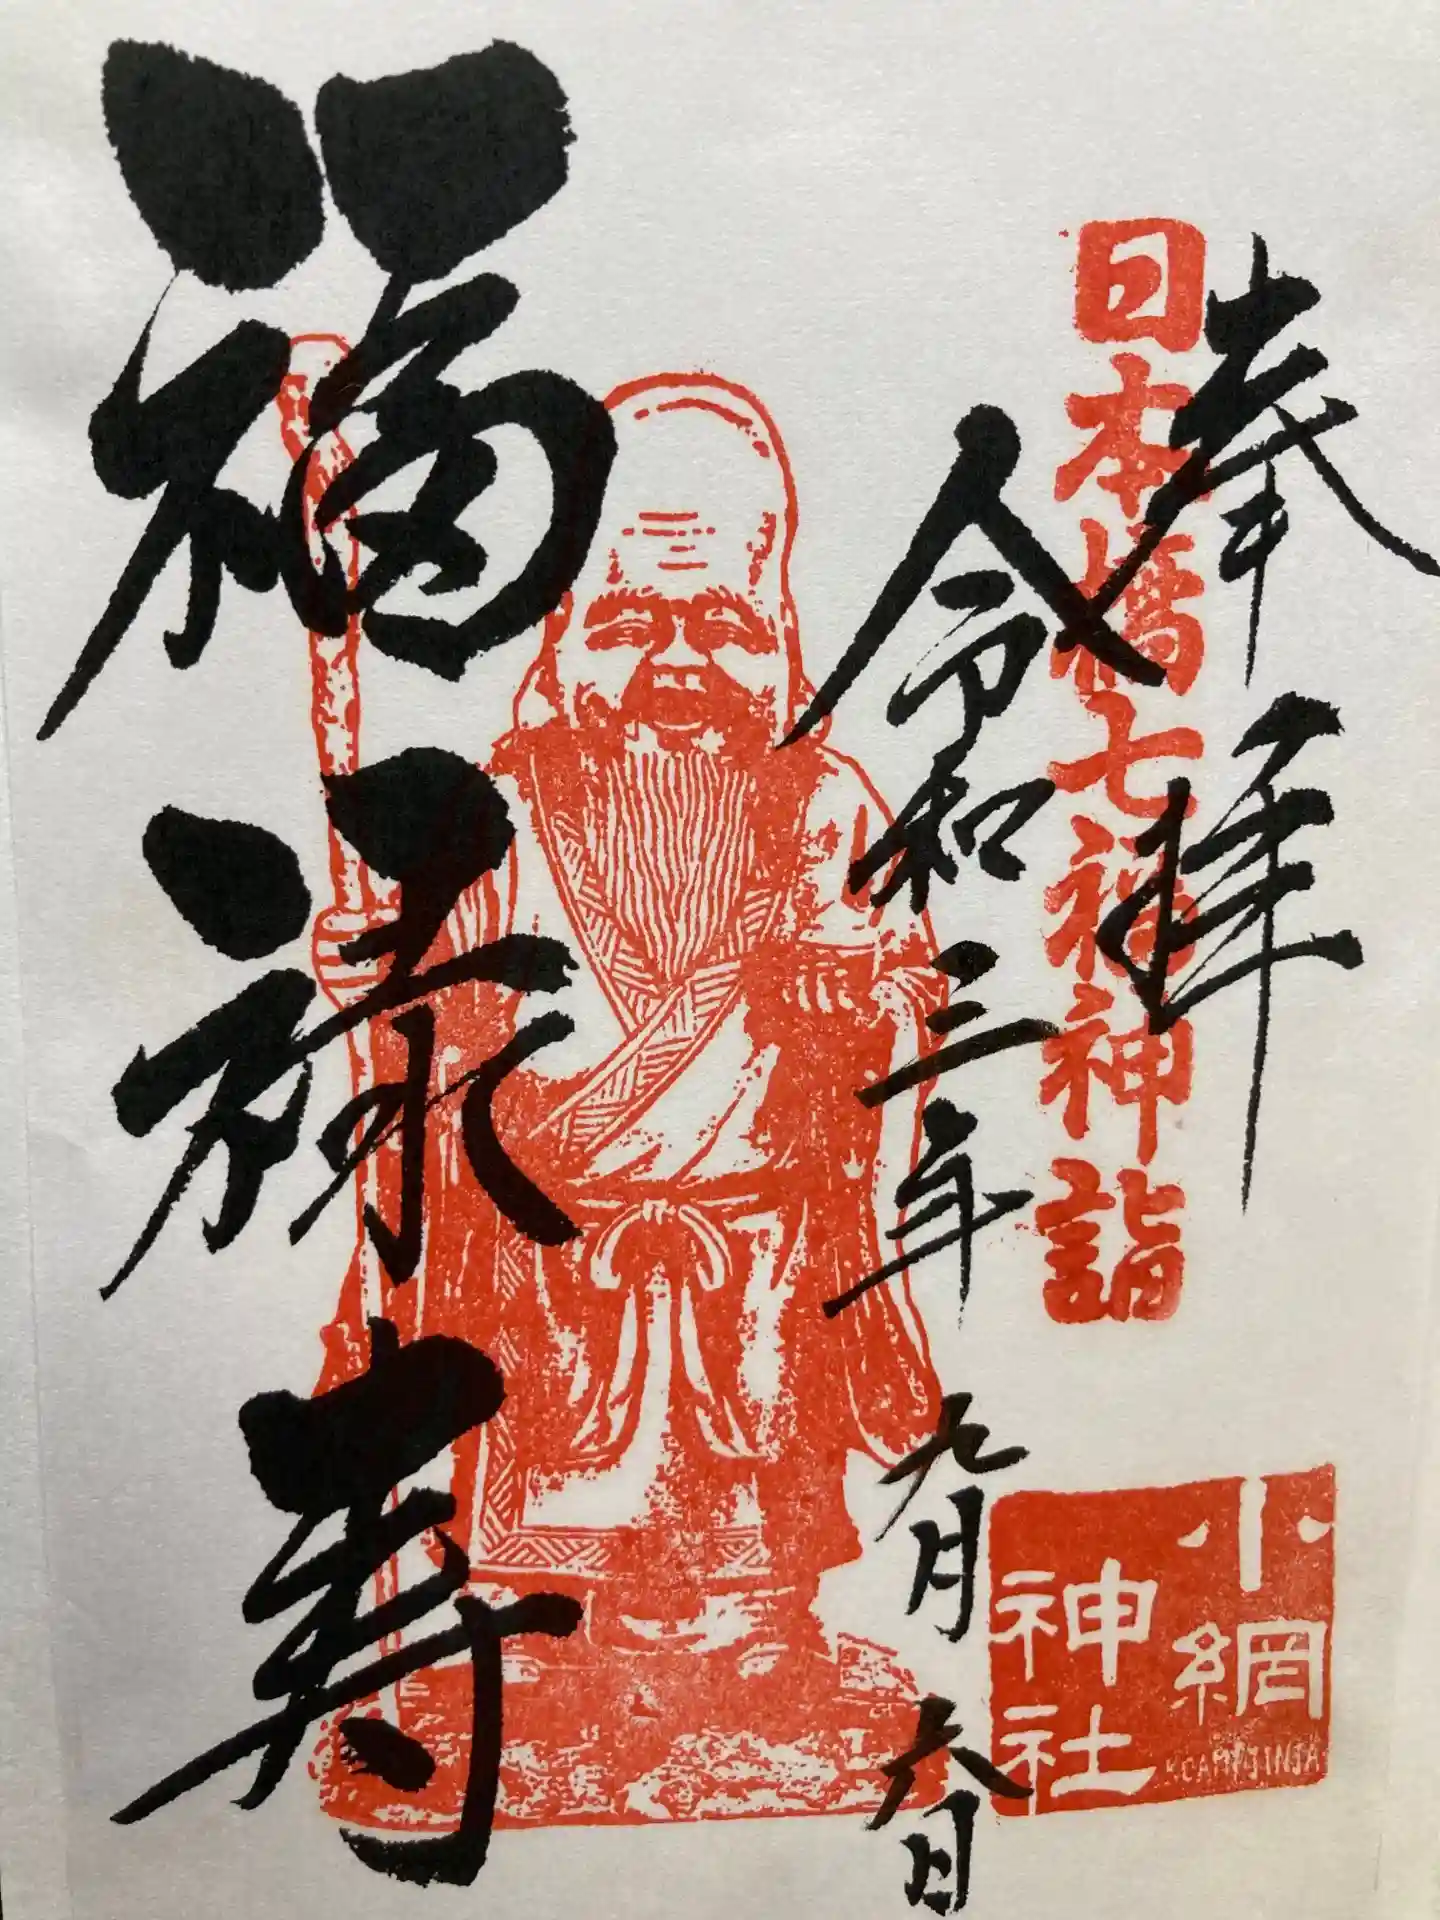 奉拝
日本橋七福神詣
令和三年九月六日
福禄寿
小網
神社
KOAMI JINJA